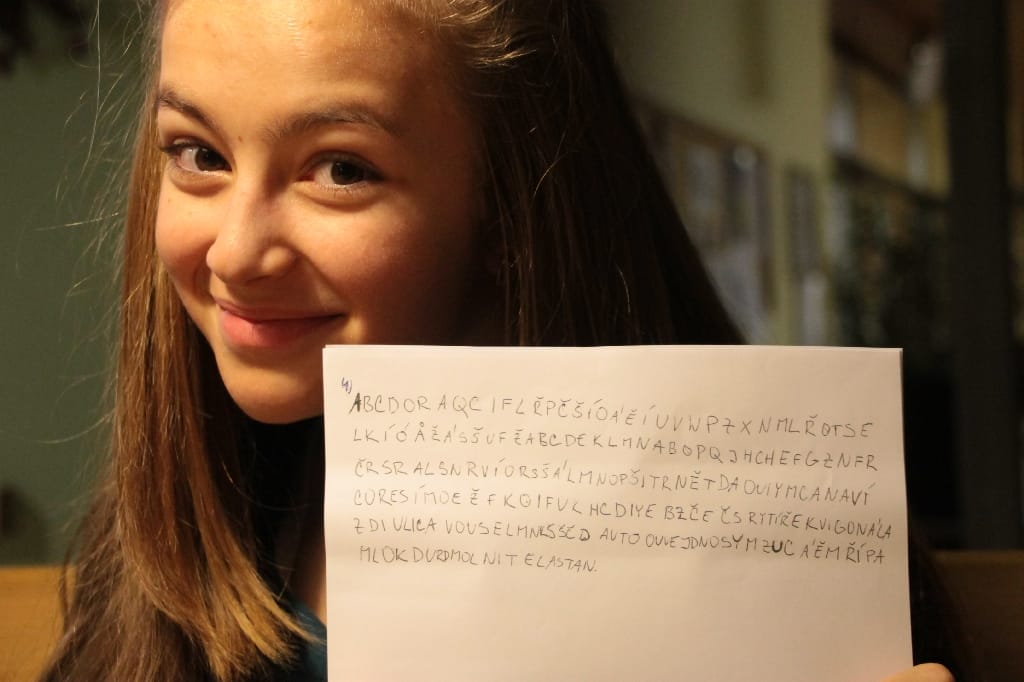 4) ABCDORAQCIFLŘPČŠÍÓÁĚÍUVWPZXNMLŘOTSE
LKÍÓÅŽÁSŠUFŽABCDEKLMNABOPQJHCHEFGZNFR
ČRSRALSNRVÍORSŠÁLMNOPŠITRNĚTDAOUIYMCANAVÍ
CORESÍMOEŽFKQIFUKHCDIYEBZČEČSRYTÍŘEKVIGONÁLA
ZDIULICAVOUSELMNKSŠČD AUTOOUVEJDNOSYMZUCÁĚMŘÍPA
MLOKDURDMOLNITELASTAN.